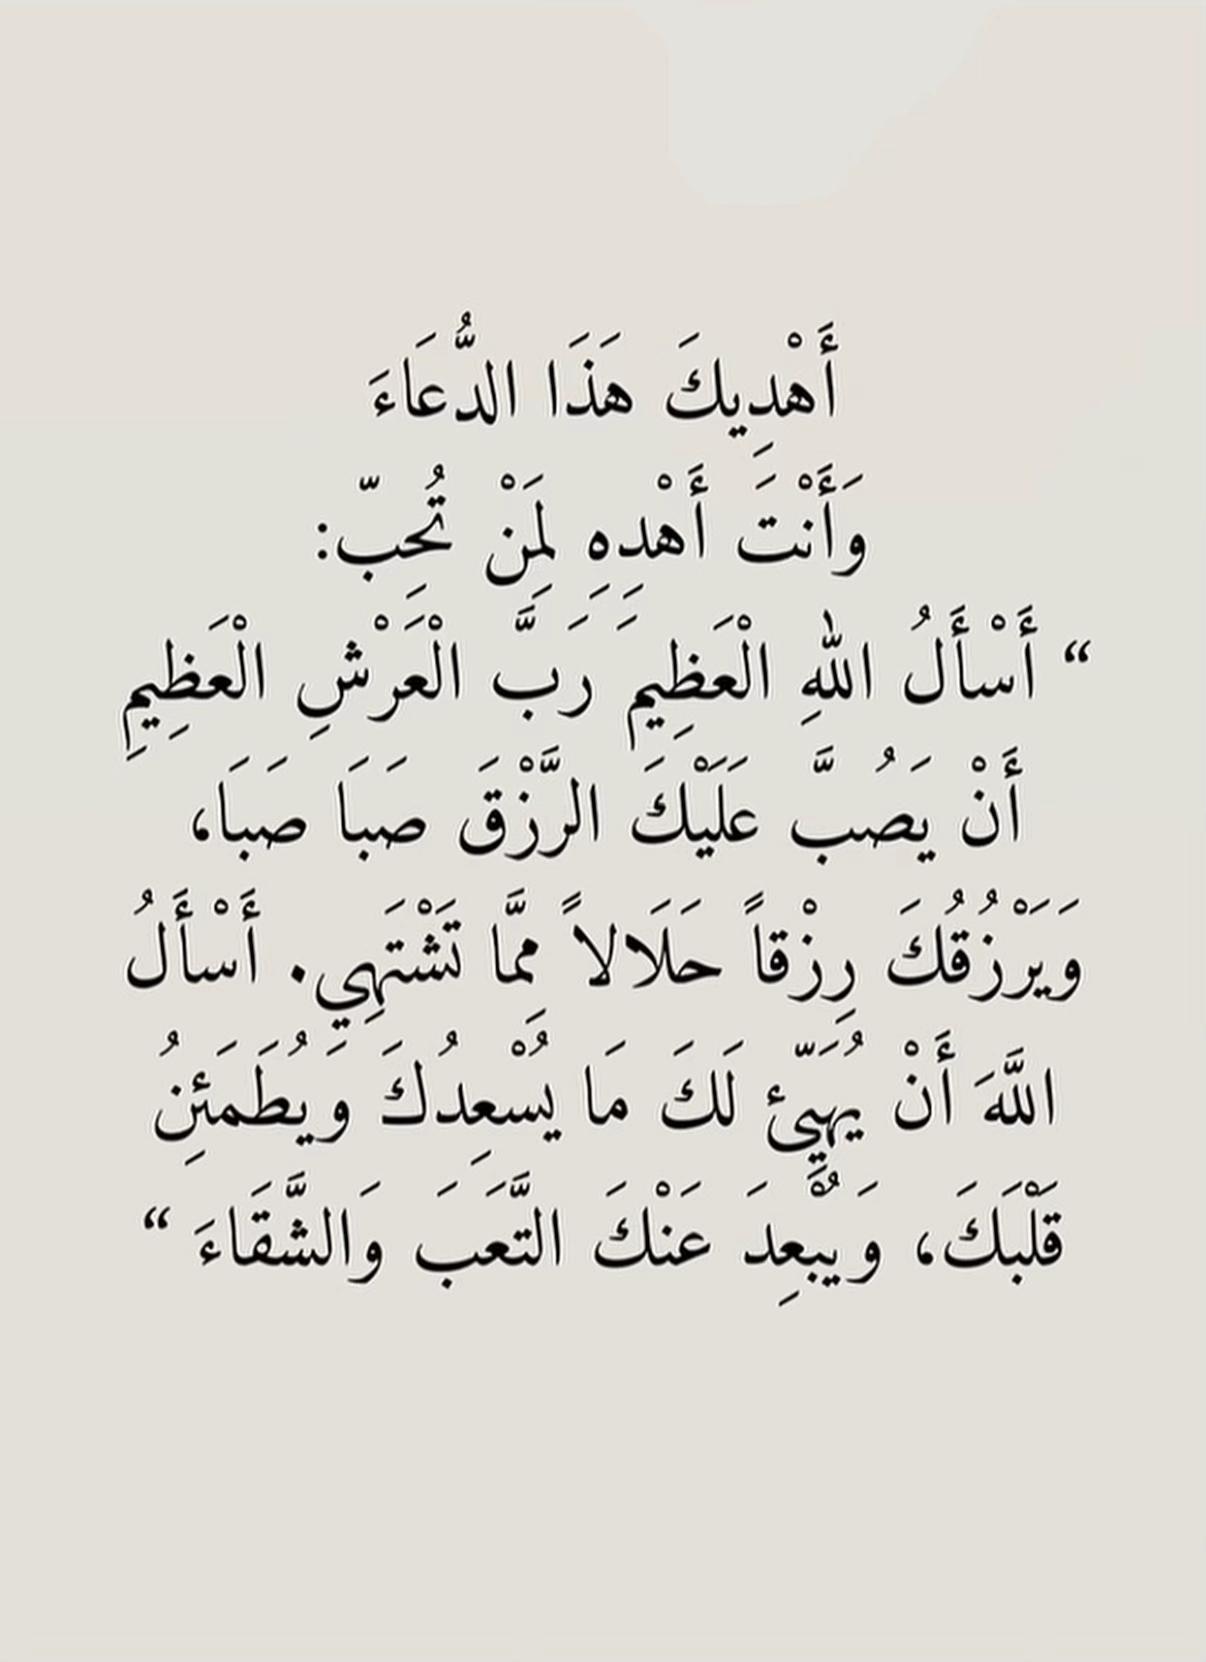 أَهْدِيكَ هَذَا الدُّعَاءَ
وَأَنْتَ أَهْدِهِ لِمَنْ تُحِبّ:
“ أَسْأَلُ اللهِ الْعَظِيمَ رَبَّ الْعَرْشِ الْعَظِيمِ
أَنْ يَصُبَّ عَلَيْكَ الرَّزْقَ صَبَا صَبَا،
وَيَرْزُقُكَ رِزْقاً حَلَالاً مِمَّا تَشْتَهِي. أَسْأَلُ
اللَّهَ أَنْ يُهَيِّئ لَكَ مَا يُسْعِدُكَ وَيُطَمَئِنُ
قَلْبَكَ، وَيُبْعِدَ عَنْكَ التَّعَبَ وَالشَّقَاءَ “